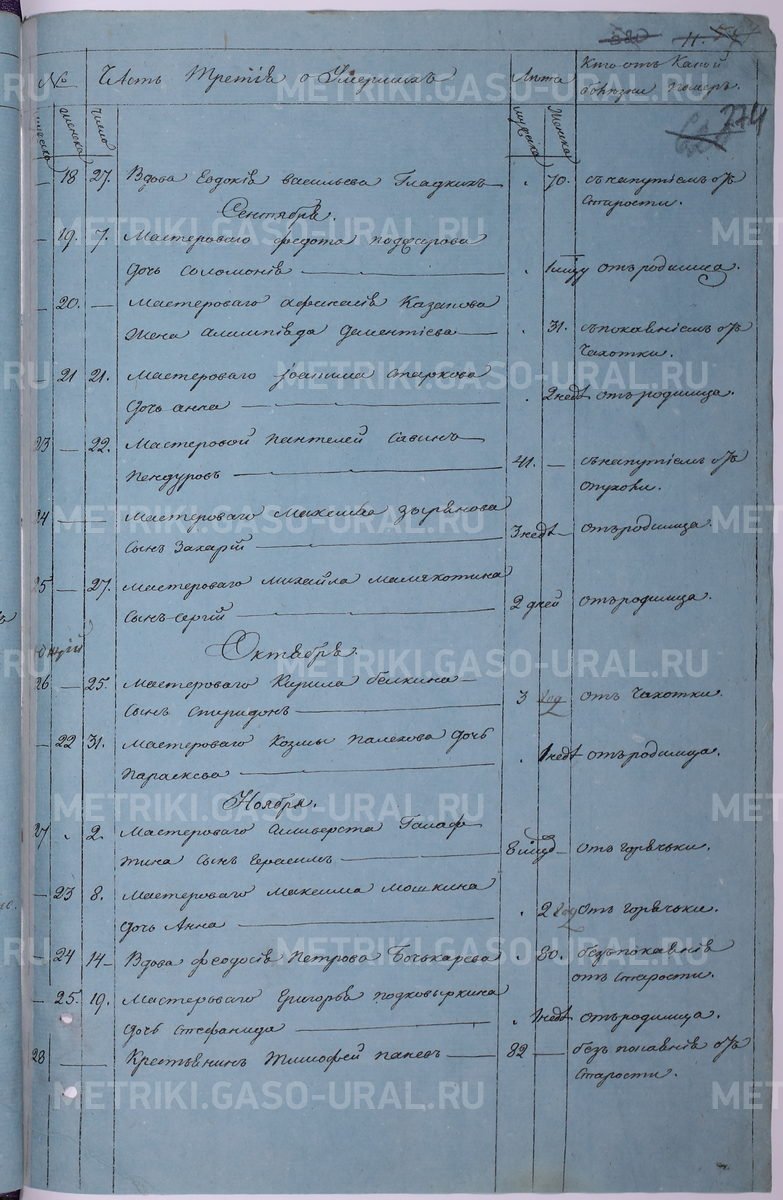 520 11. 57
№ Часть Третія о Умершихъ Лѣта Кто отъ Какой
болѣзни Померъ.
женска число мужска Женска
274
— 18 27. Вдова Евдокія васильева Гладкихъ . 70. съ напутіемъ отъ
Старости.
Сентября.
— 19. 7. Мастероваго федота
дочь Соломонія отъ родимца.
— 20. — Мастероваго афанасія Казанова
Жена Олимпіяда Дементіева . 31. съ покаяніемъ отъ
Чахотки.
— 21 21. Мастероваго Іоакима Старкова
дочь анна . 2 недѣ отъ родимца.
23 — 22. Мастеровой Пантелей Савинъ
Пендуровъ 41. — съ напутіемъ отъ
опухоли.
24 — Мастероваго Максима зырянова
Сынъ Захарій 3 недѣ — отъ родимца
25 — 27. Мастероваго Михайла Мамяхотина
Сынъ Сергій 2 дней отъ родимца.
Октября.
26 — 25. Мастероваго Кирила белкина
Сынъ Спиридонъ 3 год отъ Чахотки.
— 22 31. Мастероваго Козмы Палехова дочь
Параскева . 1 недѣ отъ родимца.
Ноября.
27 . 2. Мастероваго Сильверста Галаф
тина Сынъ Герасимъ 8 отъ горячьки.
— 23 8. Мастероваго Максима мошкина
дочь Анна . 2 год отъ горячьки.
— 24 14 — Вдова феодосія Петрова Бочькарева . 80. безъ покаянія
отъ Старости.
— 25. 19. Мастероваго Григорья подковыркина
дочь Стефанида . 1 недѣ отъ родимца.
28 — Крестьянинъ Тимофей паневъ 82 — безъ покаянія отъ
Старости.
METRIKI.GASO-URAL.RU